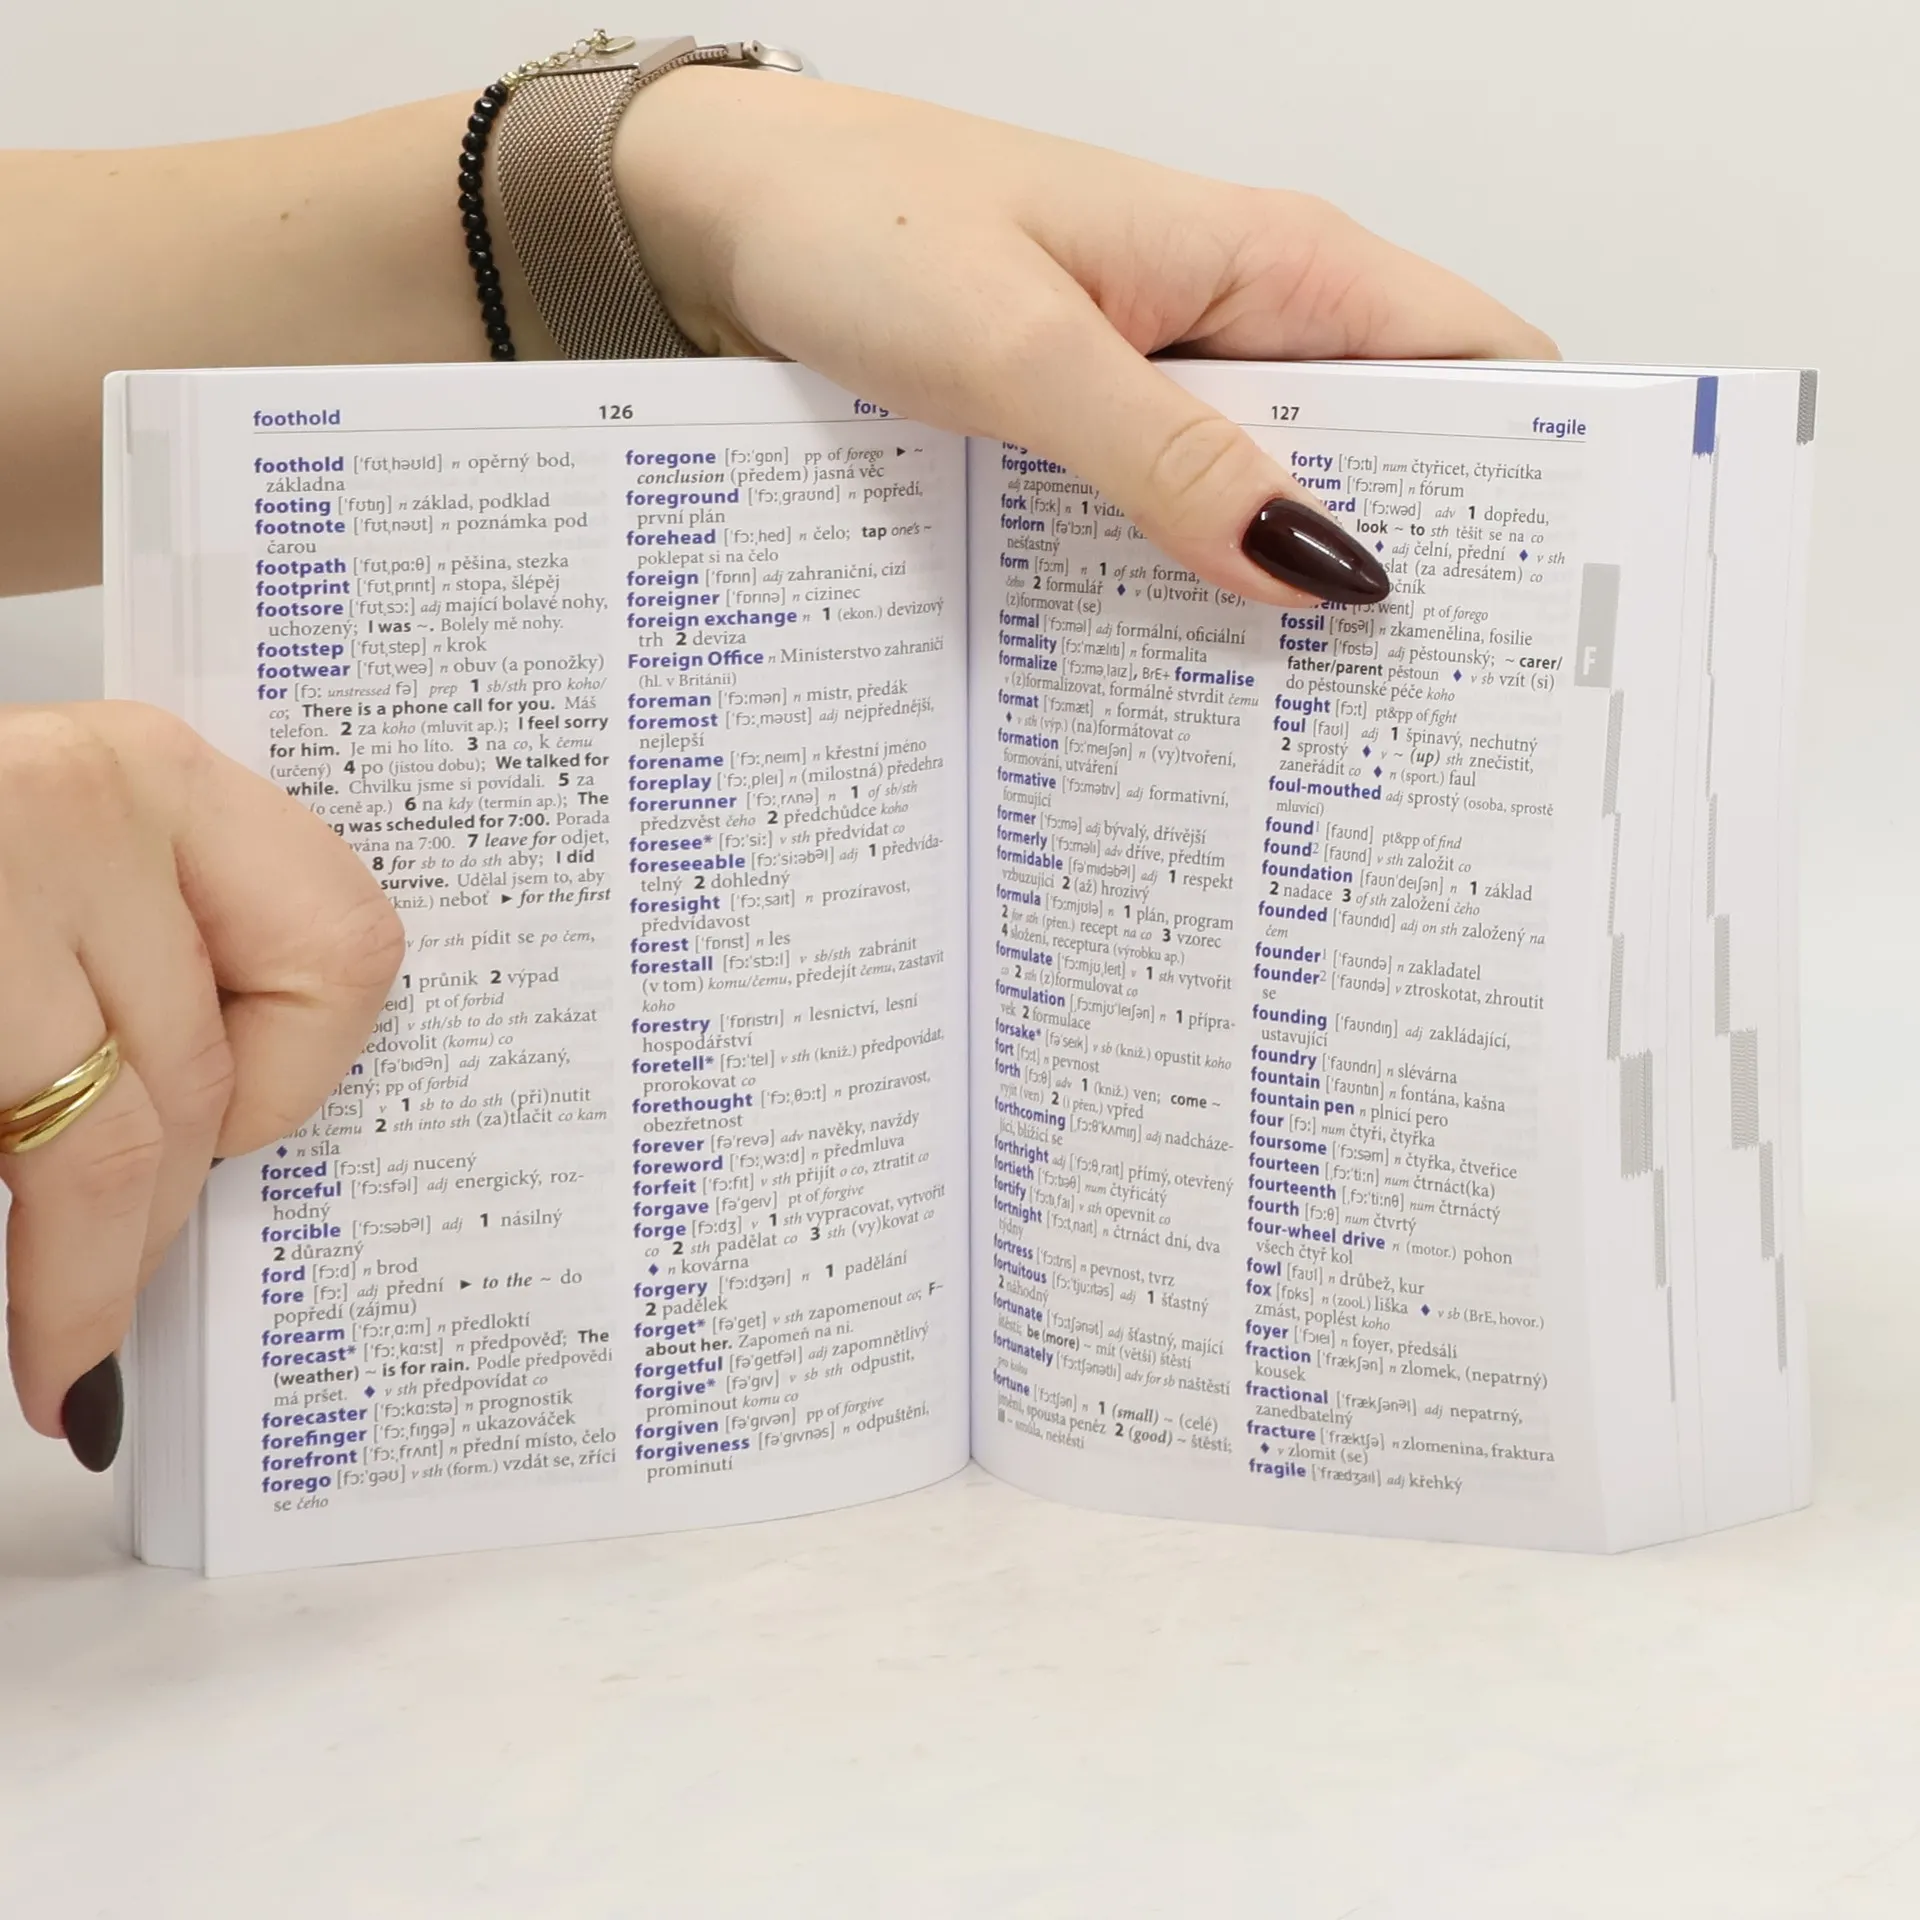 foothold 126
foothold [ˈfʊtˌhəʊld] n opěrný bod,
základna
footing [ˈfʊtɪŋ] n základ, podklad
footnote [ˈfʊtˌnəʊt] n poznámka pod
čarou
footpath [ˈfʊtˌpɑːθ] n pěšina, stezka
footprint [ˈfʊtˌprɪnt] n stopa, šlépěj
footsore [ˈfʊtˌsɔː] adj mající bolavé nohy,
uchozený; I was ~. Bolely mě nohy.
footstep [ˈfʊtˌstep] n krok
footwear [ˈfʊtˌweə] n obuv (a ponožky)
for [fɔː unstressed fə] prep 1 sb/sth pro koho/
co; There is a phone call for you. Máš
telefon. 2 za koho (mluvit ap.); I feel sorry
for him. Je mi ho líto. 3 na co, k čemu
(určený) 4 po (jistou dobu); We talked for
while. Chvilku jsme si povídali. 5 za
(o ceně ap.) 6 na kdy (termín ap.); The
was scheduled for 7:00. Porada
na 7:00. 7 leave for odjet,
8 for sb to do sth aby; I did
survive. Udělal jsem to, aby
(kniž.) neboť ► for the first
v for sth pídit se po čem,
1 průnik 2 výpad
pt of forbid
v sth/sb to do sth zakázat
(komu) co
[fəˈbɪdən] adj zakázaný,
pp of forbid
[fɔːs] v 1 sb to do sth (při)nutit
k čemu 2 sth into sth (za)tlačit co kam
♦ n síla
forced [fɔːst] adj nucený
forceful [ˈfɔːsfəl] adj energický, roz-
hodný
forcible [ˈfɔːsəbəl] adj 1 násilný
2 důrazný
ford [fɔːd] n brod
fore [fɔː] adj přední ► to the ~ do
popředí (zájmu)
forearm [ˈfɔːrˌɑːm] n předloktí
forecast* [ˈfɔːˌkɑːst] n předpověď; The
(weather) ~ is for rain. Podle předpovědi
má pršet. ♦ v sth předpovídat co
forecaster [ˈfɔːˌkɑːstə] n prognostik
forefinger [ˈfɔːˌfɪŋgə] n ukazováček
forefront [ˈfɔːˌfrʌnt] n přední místo, čelo
forego [fɔːˈgəʊ] v sth (form.) vzdát se, zříci
se čeho
foregone [fɔːˈgɒn] pp of forego ► ~
conclusion (předem) jasná věc
foreground [ˈfɔːˌgraʊnd] n popředí,
první plán
forehead [ˈfɔːˌhed] n čelo; tap one's ~
poklepat si na čelo
foreign [ˈfɒrɪn] adj zahraniční, cizí
foreigner [ˈfɒrɪnə] n cizinec
foreign exchange n 1 (ekon.) devizový
trh 2 deviza
Foreign Office n Ministerstvo zahraničí
(hl. v Británii)
foreman [ˈfɔːmən] n mistr, předák
foremost [ˈfɔːˌməʊst] adj nejpřednější,
nejlepší
forename [ˈfɔːˌneɪm] n křestní jméno
foreplay [ˈfɔːˌpleɪ] n (milostná) předehra
forerunner [ˈfɔːˌrʌnə] n 1 of sb/sth
předzvěst čeho 2 předchůdce koho
foresee* [fɔːˈsiː] v sth předvídat co
foreseeable [fɔːˈsiːəbəl] adj 1 předvída-
telný 2 dohledný
foresight [ˈfɔːˌsaɪt] n prozíravost,
předvídavost
forest [ˈfɒrɪst] n les
forestall [fɔːˈstɔːl] v sb/sth zabránit
(v tom) komu/čemu, předejít čemu, zastavit
koho
forestry [ˈfɒrɪstrɪ] n lesnictví, lesní
hospodářství
foretell* [fɔːˈtel] v sth (kniž.) předpovídat,
prorokovat co
forethought [ˈfɔːˌθɔːt] n prozíravost,
obezřetnost
forever [fəˈrevə] adv navěky, navždy
foreword [ˈfɔːˌwɜːd] n předmluva
forfeit [ˈfɔːfɪt] v sth přijít o co, ztratit co
forgave [fəˈgeɪv] pt of forgive
forge [fɔːdʒ] v 1 sth vypracovat, vytvořit
co 2 sth padělat co 3 sth (vy)kovat co
♦ n kovárna
forgery [ˈfɔːdʒərɪ] n 1 padělání
2 padělek
forget* [fəˈget] v sth zapomenout co; F~
about her. Zapomeň na ni.
forgetful [fəˈgetfəl] adj zapomnětlivý
forgive* [fəˈgɪv] v sb sth odpustit,
prominout komu co
forgiven [fəˈgɪvən] pp of forgive
forgiveness [fəˈgɪvnəs] n odpuštění,
prominutí
127 fragile
adj
fork [fɔːk] n 1
forlorn [fəˈlɔːn] adj
nešťastný
form [fɔːm] n 1 of sth forma,
čeho 2 formulář ♦ v (u)tvořit (se),
(z)formovat (se)
formal [ˈfɔːməl] adj formální, oficiální
formality [fɔːˈmælɪtɪ] n formalita
formalize [ˈfɔːməˌlaɪz], BrE+ formalise
v (z)formalizovat, formálně stvrdit čemu
format [ˈfɔːmæt] n formát, struktura
♦ v sth (výp.) (na)formátovat co
formation [fɔːˈmeɪʃən] n (vy)tvoření,
formování, utváření
formative [ˈfɔːmətɪv] adj formativní,
formující
former [ˈfɔːmə] adj bývalý, dřívější
formerly [ˈfɔːməlɪ] adv dříve, předtím
formidable [fəˈmɪdəbəl] adj 1 respekt
vzbuzující 2 (až) hrozivý
formula [ˈfɔːmjʊlə] n 1 plán, program
2 for sth (přen.) recept na co 3 vzorec
4 složení, receptura (výrobku ap.)
formulate [ˈfɔːmjʊˌleɪt] v 1 sth vytvořit
co 2 sth (z)formulovat co
formulation [ˌfɔːmjʊˈleɪʃən] n 1 přípra-
vek 2 formulace
forsake* [fəˈseɪk] v sb (kniž.) opustit koho
fort [fɔːt] n pevnost
forth [fɔːθ] adv 1 (kniž.) ven; come ~
vyjít (ven) 2 (i přen.) vpřed
forthcoming [ˌfɔːθˈkʌmɪŋ] adj nadcháze-
jící, blížící se
forthright adj [ˈfɔːθˌraɪt] přímý, otevřený
fortieth [ˈfɔːtɪəθ] num čtyřicátý
fortify [ˈfɔːtɪˌfaɪ] v sth opevnit co
fortnight [ˈfɔːtˌnaɪt] n čtrnáct dní, dva
týdny
fortress [ˈfɔːtrɪs] n pevnost, tvrz
fortuitous [fɔːˈtjuːɪtəs] adj 1 šťastný
2 náhodný
fortunate [ˈfɔːtʃənət] adj šťastný, mající
štěstí; be (more) ~ mít (větší) štěstí
fortunately [ˈfɔːtʃənətlɪ] adv for sb naštěstí
pro koho
fortune [ˈfɔːtʃən] n 1 (small) ~ (celé)
jmění, spousta peněz 2 (good) ~ štěstí;
ill ~ smůla, neštěstí
forty [ˈfɔːtɪ] num čtyřicet, čtyřicítka
forum [ˈfɔːrəm] n fórum
[ˈfɔːwəd] adv 1 dopředu,
look ~ to sth těšit se na co
♦ adj čelní, přední ♦ v sth
(za adresátem) co
pt of forego
fossil [ˈfɒsəl] n zkamenělina, fosilie
foster [ˈfɒstə] adj pěstounský; ~ carer/
father/parent pěstoun ♦ v sb vzít (si)
do pěstounské péče koho
fought [fɔːt] pt&pp of fight
foul [faʊl] adj 1 špinavý, nechutný
2 sprostý ♦ v ~ (up) sth znečistit,
zaneřádit co ♦ n (sport.) faul
foul-mouthed adj sprostý (osoba, sprostě
mluvící)
found¹ [faʊnd] pt&pp of find
found² [faʊnd] v sth založit co
foundation [faʊnˈdeɪʃən] n 1 základ
2 nadace 3 of sth založení čeho
founded [ˈfaʊndɪd] adj on sth založený na
čem
founder¹ [ˈfaʊndə] n zakladatel
founder² [ˈfaʊndə] v ztroskotat, zhroutit
se
founding [ˈfaʊndɪŋ] adj zakládající,
ustavující
foundry [ˈfaʊndrɪ] n slévárna
fountain [ˈfaʊntɪn] n fontána, kašna
fountain pen n plnicí pero
four [fɔː] num čtyři, čtyřka
foursome [ˈfɔːsəm] n čtyřka, čtveřice
fourteen [ˌfɔːˈtiːn] num čtrnáct(ka)
fourteenth [ˌfɔːˈtiːnθ] num čtrnáctý
fourth [fɔːθ] num čtvrtý
four-wheel drive n (motor.) pohon
všech čtyř kol
fowl [faʊl] n drůbež, kur
fox [fɒks] n (zool.) liška ♦ v sb (BrE, hovor.)
zmást, poplést koho
foyer [ˈfɔɪeɪ] n foyer, předsálí
fraction [ˈfrækʃən] n zlomek, (nepatrný)
kousek
fractional [ˈfrækʃənəl] adj nepatrný,
zanedbatelný
fracture [ˈfræktʃə] n zlomenina, fraktura
♦ v zlomit (se)
fragile [ˈfrædʒaɪl] adj křehký
F